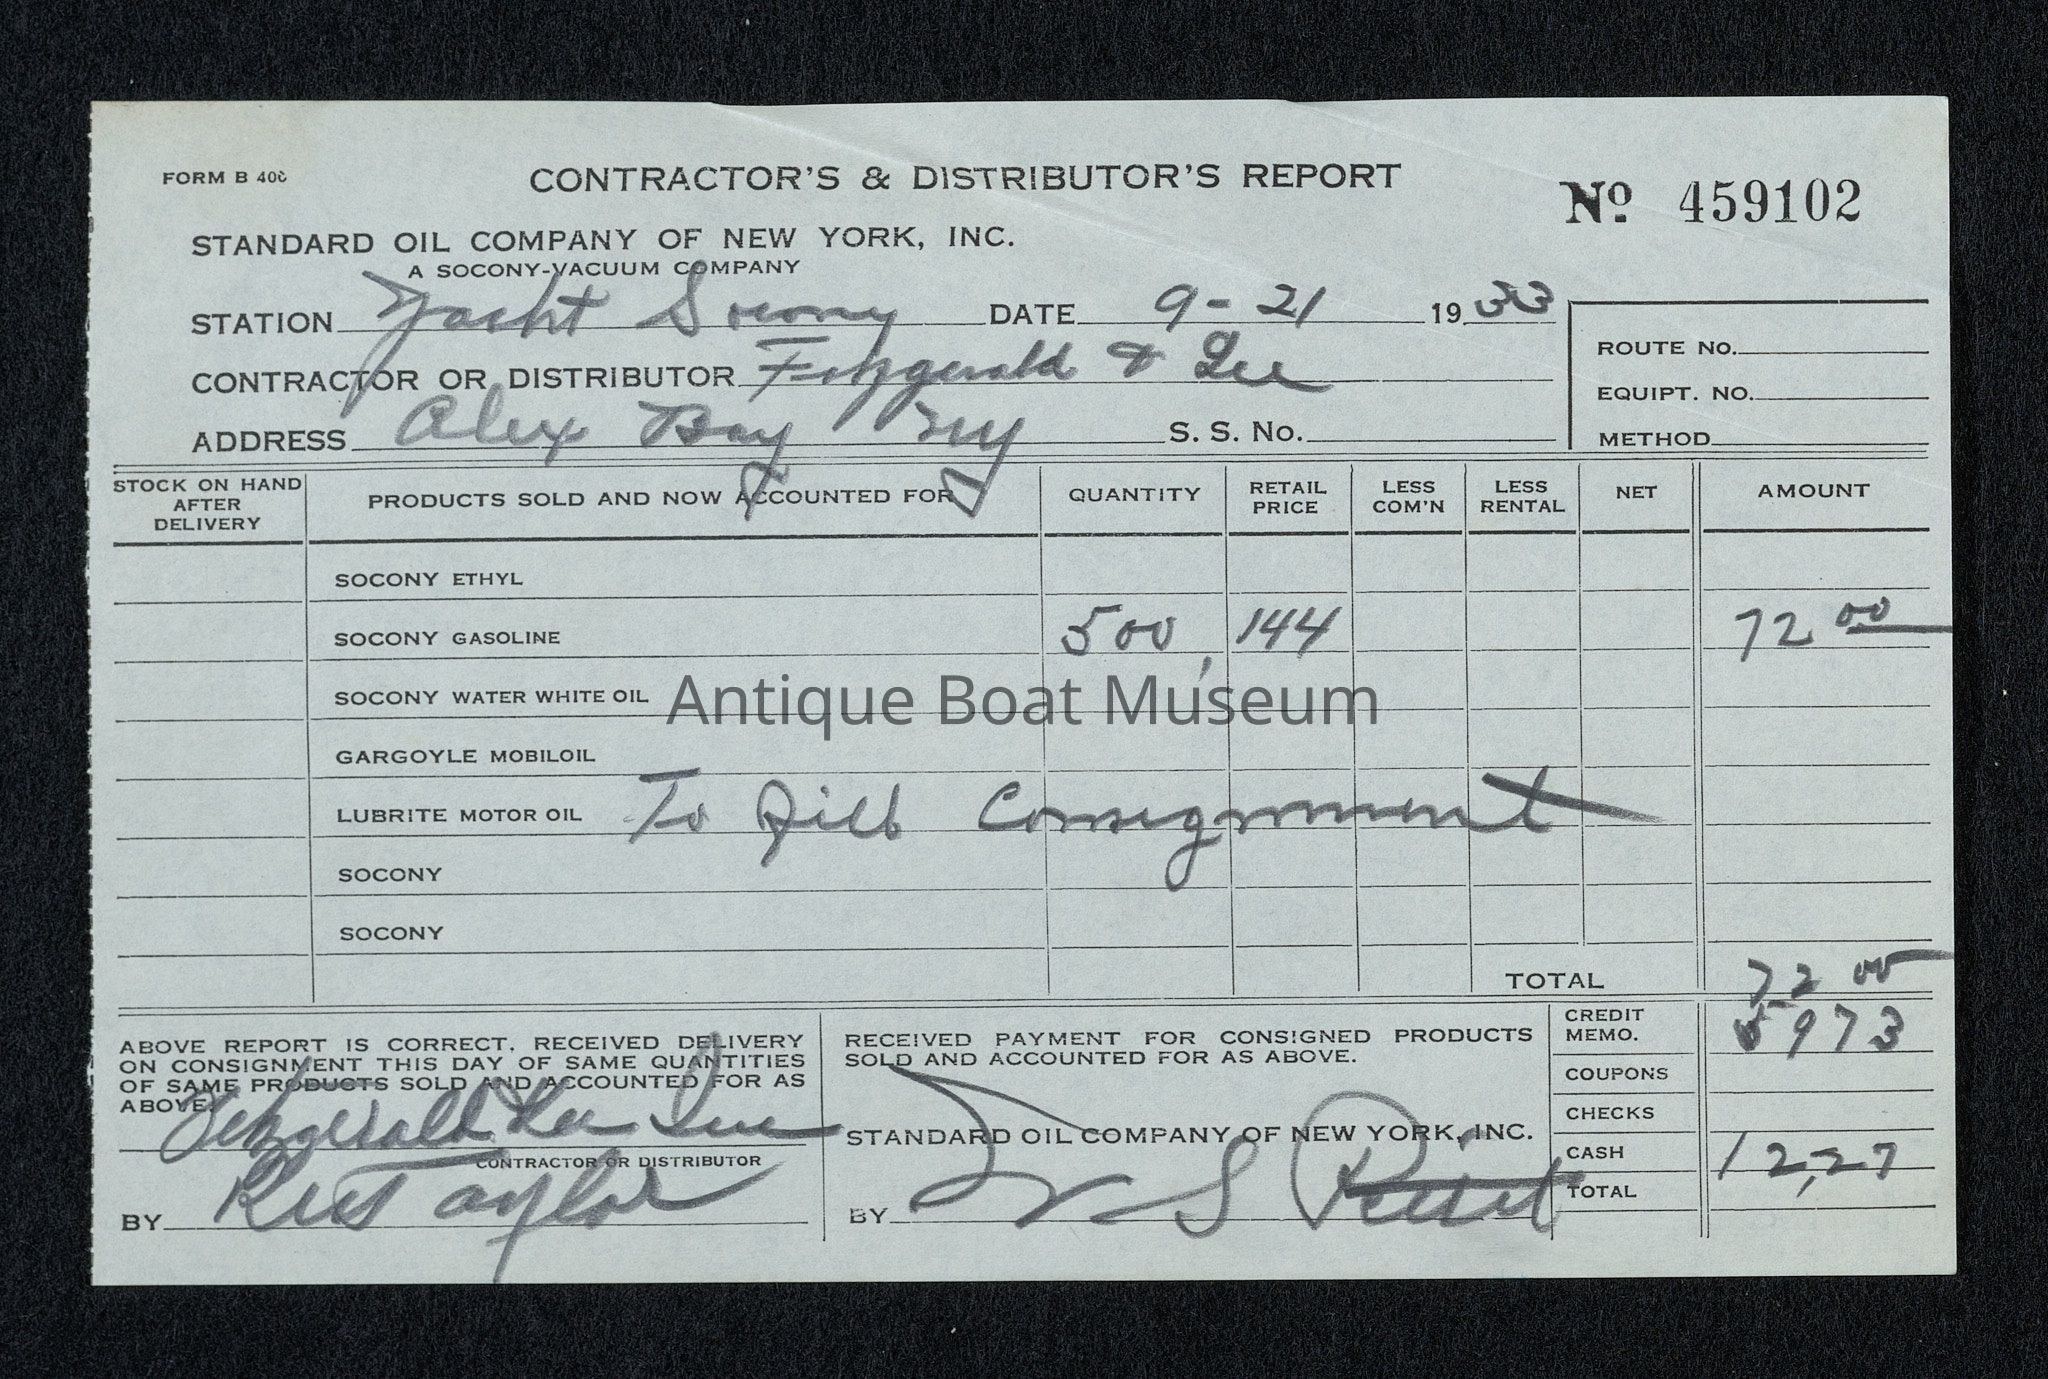 FORM B 406
CONTRACTOR'S & DISTRIBUTOR'S REPORT
No 459102
STANDARD OIL COMPANY OF NEW YORK, INC.
A SOCONY-VACUUM COMPANY
STATION Yacht Socony DATE 9-21 1933
CONTRACTOR OR DISTRIBUTOR Fitzgerald & Lee
ADDRESS Alex Bay NY S. S. No.
ROUTE No.
EQUIPT. NO.
METHOD
STOCK ON HAND AFTER DELIVERY PRODUCTS SOLD AND NOW ACCOUNTED FOR QUANTITY RETAIL PRICE LESS COM'N LESS RENTAL NET AMOUNT
SOCONY ETHYL
SOCONY GASOLINE 500 ,144 72 00
SOCONY WATER WHITE OIL
Antique Boat Museum
GARGOYLE MOBILOIL
LUBRITE MOTOR OIL To Fill Consignment
SOCONY
SOCONY
TOTAL 72 00
ABOVE REPORT IS CORRECT. RECEIVED DELIVERY
ON CONSIGNMENT THIS DAY OF SAME QUANTITIES
OF SAME PRODUCTS SOLD AND ACCOUNTED FOR AS
ABOVE.
Fitzgerald & Lee Inc
CONTRACTOR OR DISTRIBUTOR
BY Taylor
RECEIVED PAYMENT FOR CONSIGNED PRODUCTS
SOLD AND ACCOUNTED FOR AS ABOVE.
STANDARD OIL COMPANY OF NEW YORK, INC.
BY
CREDIT MEMO. 5973
COUPONS
CHECKS
CASH 12,27
TOTAL